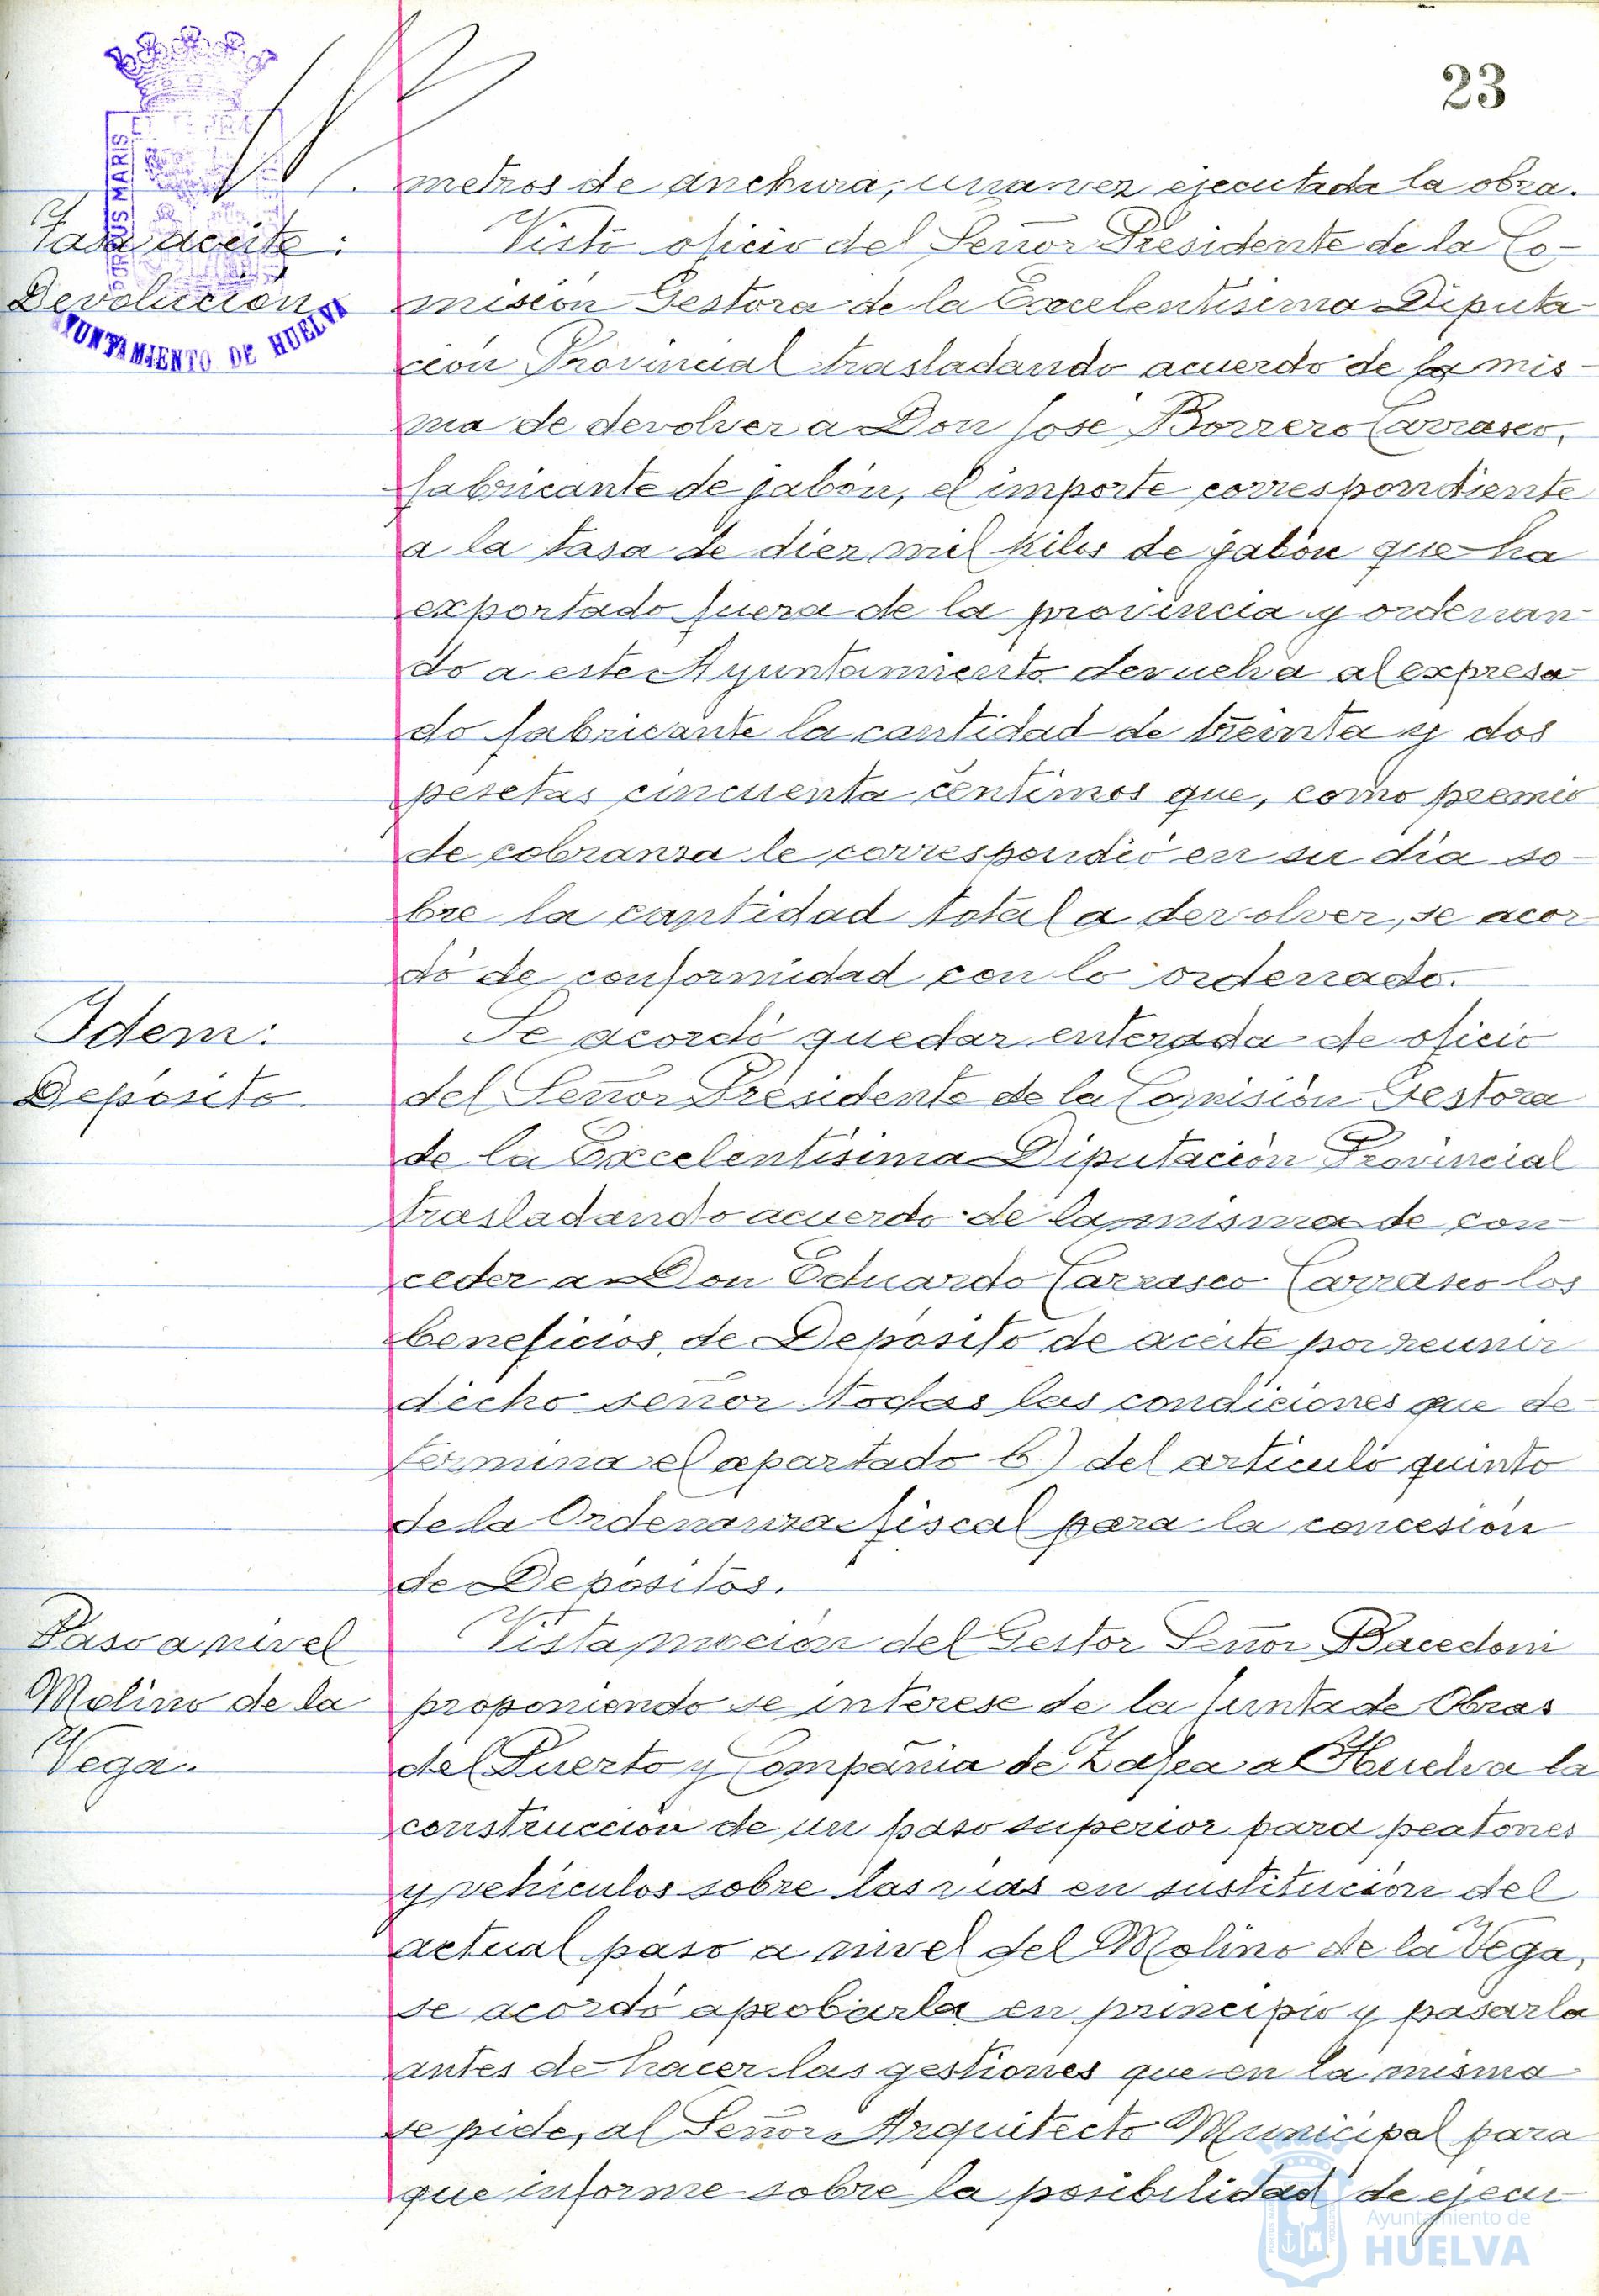 23
metros de anchura, una vez ejecutada la obra.
Tasa aceite:
Devolución
PORTUS MARIS
AYUNTAMIENTO DE HUELVA
Visto oficio del Señor Presidente de la Co-
misión Gestora de la Excelentísima Diputa-
ción Provincial trasladando acuerdo de la mis-
ma de devolver a Don José Borrero Carrasco,
fabricante de jabón, el importe correspondiente
a la tasa de diez mil kilos de jabón que ha
exportado fuera de la provincia y ordenan-
do a este Ayuntamiento devuelva al expresa-
do fabricante la cantidad de treinta y dos
pesetas cincuenta céntimos que, como premio
de cobranza le correspondió en su día so-
bre la cantidad total a devolver, se acor-
dó de conformidad con lo ordenado.
Idem:
Depósito.
Se acordó quedar enterada de oficio
del Señor Presidente de la Comisión Gestora
de la Excelentísima Diputación Provincial
trasladando acuerdo de la misma de con-
ceder a Don Eduardo Carrasco Carrasco los
beneficios de Depósito de aceite por reunir
dicho señor todas las condiciones que de-
termina el apartado b) del artículo quinto
de la Ordenanza fiscal para la concesión
de Depósitos.
Paso a nivel
Molino de la
Vega.
Vista moción del Gestor Señor Bacedoni
proponiendo se interese de la Junta de Obras
del Puerto y Compañía de Zafra a Huelva la
construcción de un paso superior para peatones
y vehículos sobre las vías en sustitución del
actual paso a nivel del Molino de la Vega,
se acordó aprobarla en principio y pasarla
antes de hacer las gestiones que en la misma
se pide, al Señor Arquitecto Municipal para
que informe sobre la posibilidad de ejecu-
Ayuntamiento de
HUELVA